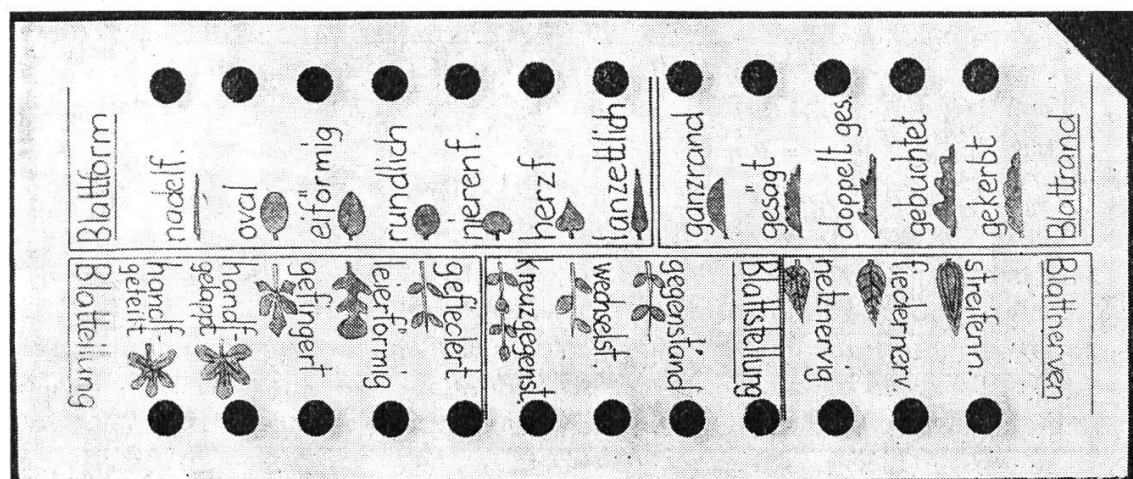 Blattform
nadelf.
oval
eiförmig
rundlich
nierenf.
herzf.
lanzettlich
ganzrand
gesägt
doppelt ges.
gebuchtet
gekerbt
Blattrand
Blatteilung
handf. geteilt
handf. gelappt
gefingert
leierförmig
gefiedert
kreuzgegenst.
wechselst
gegenständ
Blattstellung
netznervig
fiedernerv
streifenn.
Blattnerven